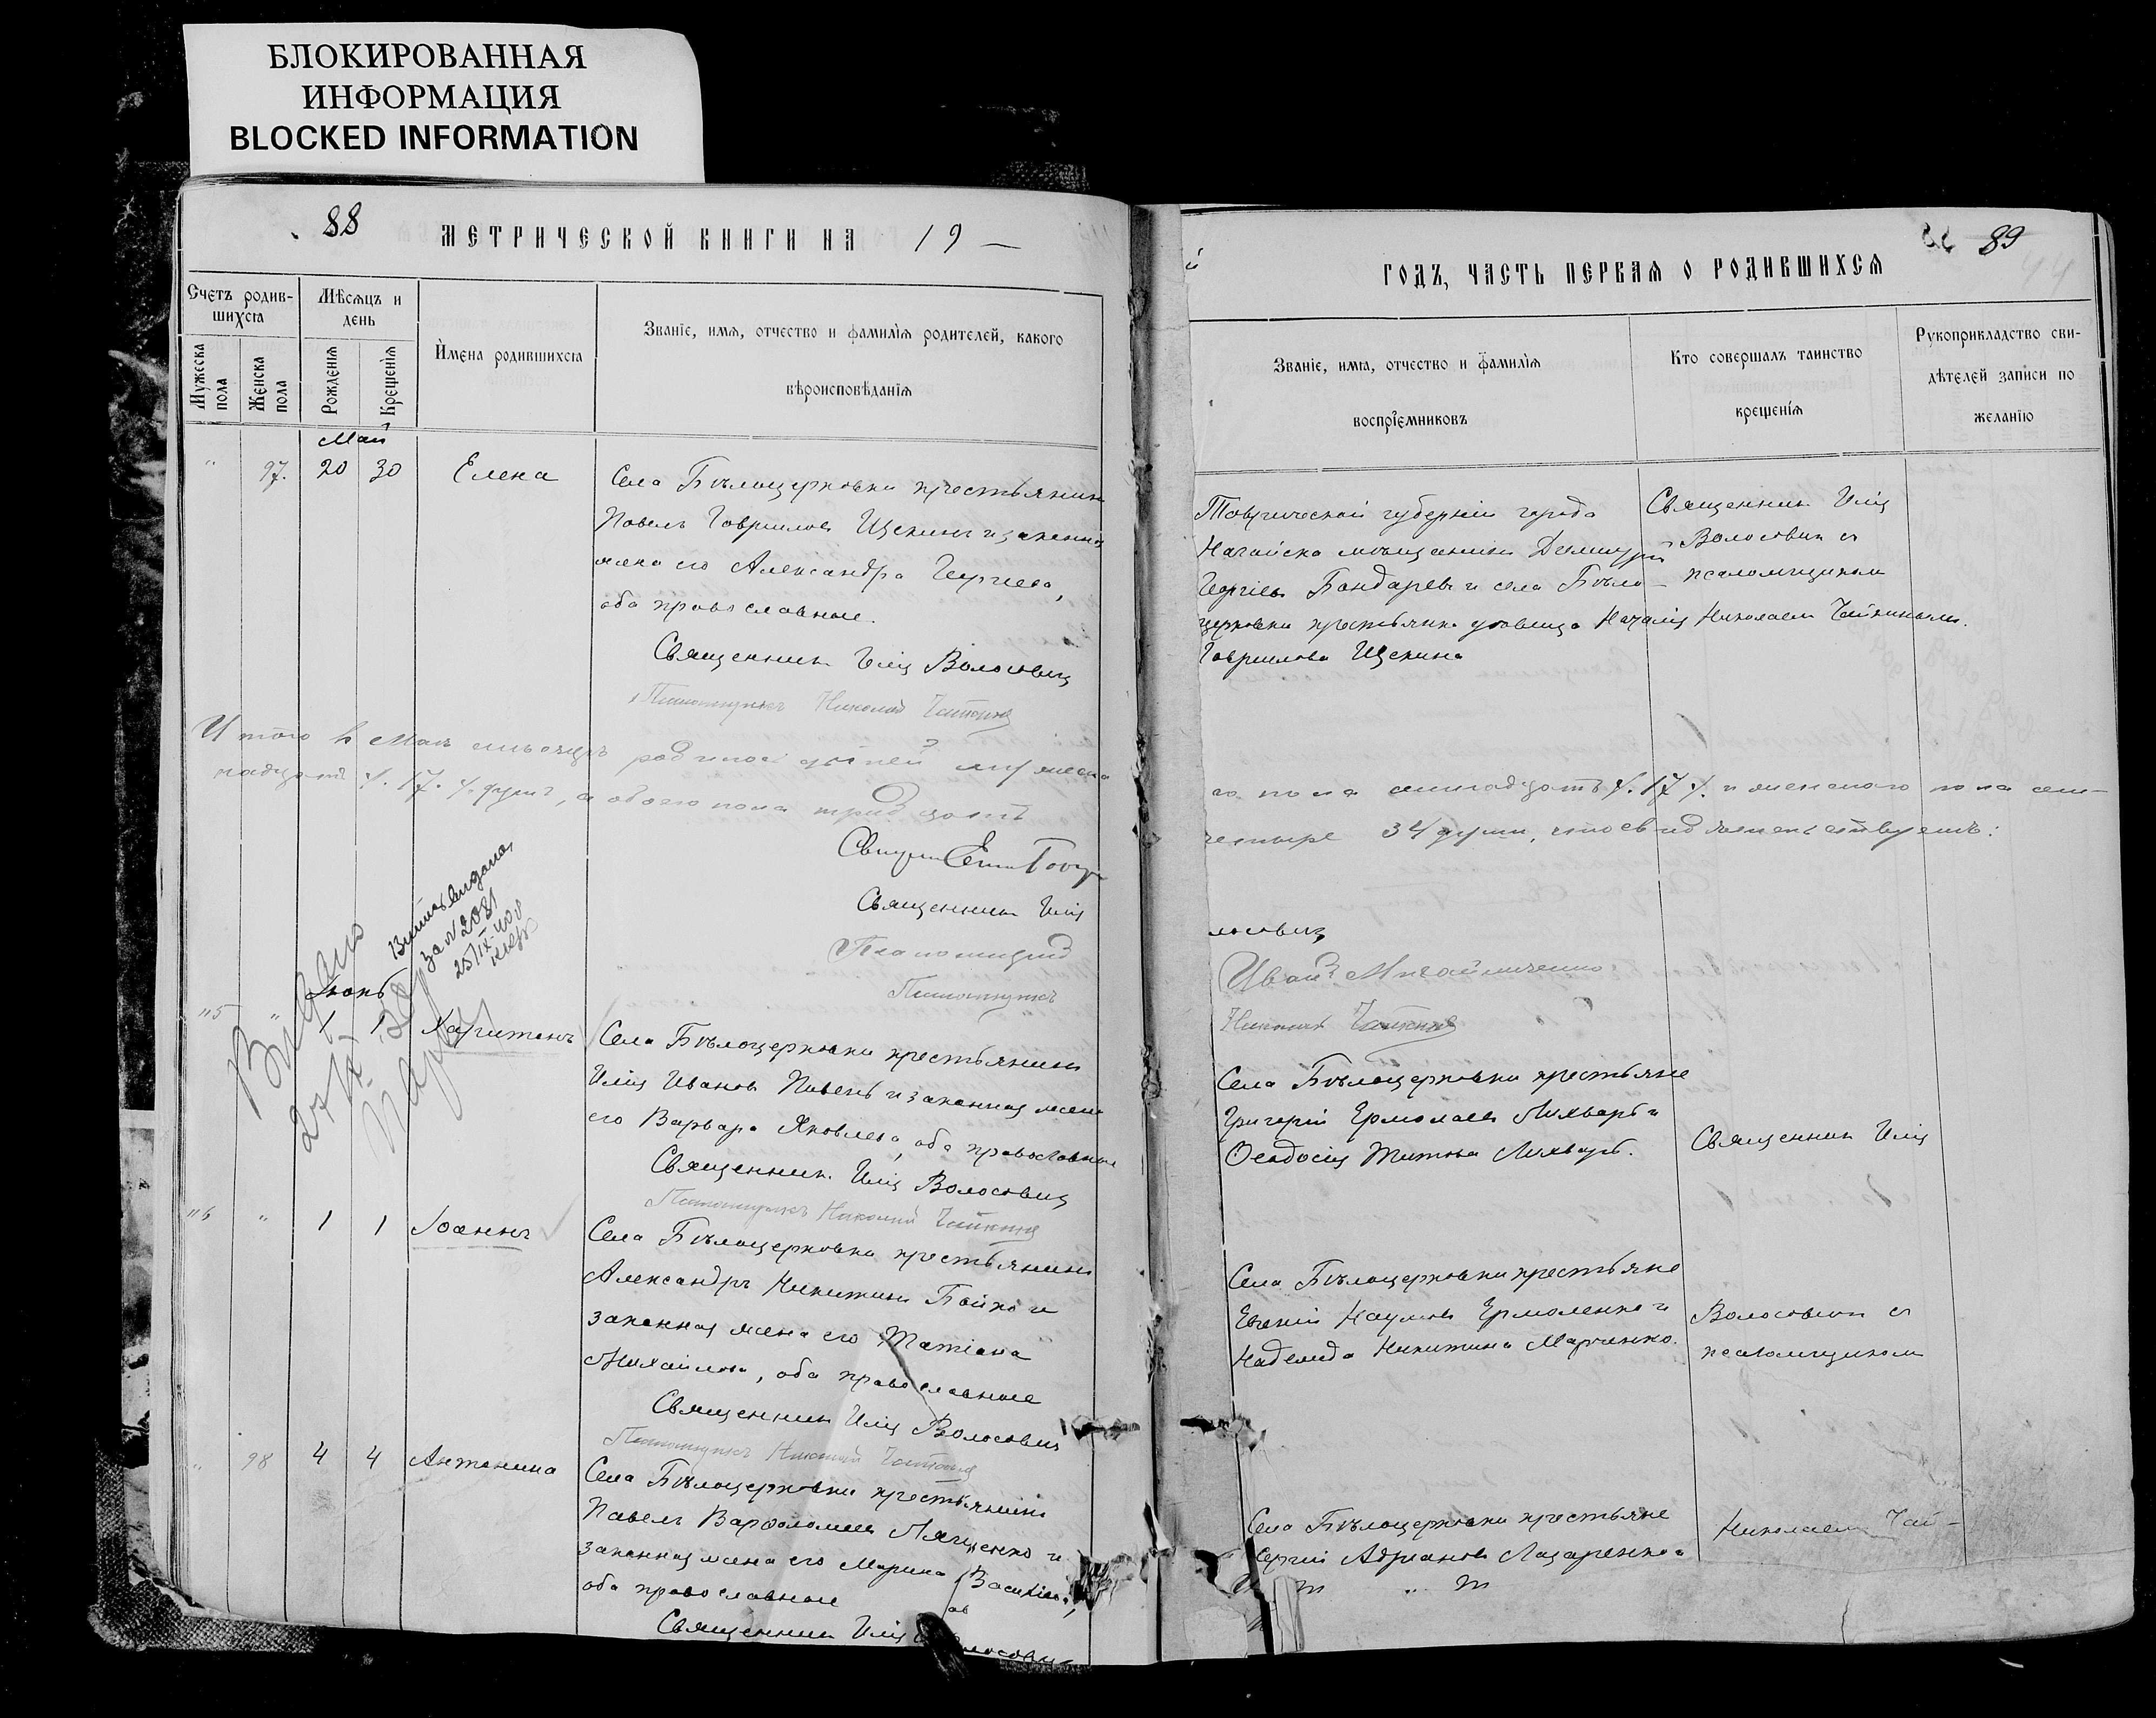 БЛОКИРОВАННАЯ
ИНФОРМАЦИЯ
BLOCKED INFORMATION
88
МЕТРИЧЕСКОЙ КНИГИ НА 19 —
Счетъ родив-
шихся
Мѣсяцъ и
день
Имена родившихся
Званіе, имя, отчество и фамилія родителей, какого
вѣроисповѣданія
Мужеска пола
Женска пола
Рожденія
Крещенія
Май
" 97. 20 30 Елена
Села Бѣлоцерковки крестьянинъ
Павелъ Гавриловъ Щекинъ и законная
жена его Александра Георгіева,
оба православные.
Священникъ Илія Волосовичъ
Псаломщикъ Николай Чайкинъ
Итого въ Маѣ мѣсяцѣ родилось дѣтей мужеска
надцать /. 17. /. душъ, а обоего пола тридцать
Священникъ Илія
Псаломщикъ
Псаломщикъ
Видано
Июнь
за № 2031
25/IX-40
115 " 1 1 Харитонъ
Села Бѣлоцерковки крестьянинъ
Илія Ивановъ Пивень и законная жена
его Варвара Яковлева, оба православные
Священникъ Илія Волосовичъ
Псаломщикъ Николай Чайкинъ
116 " 1 1 Іоаннъ
Села Бѣлоцерковки крестьянинъ
Александръ Никитинъ Бойко и
законная жена его Татіана
Михайлова, оба православные
Священникъ Илія Волосовичъ
Псаломщикъ Николай Чайкинъ
" 98 4 4 Антонина
Села Бѣлоцерковки крестьянинъ
Павелъ Варфоломеевъ Лященко и
законная жена его Марина Василіева,
оба православные
Священникъ Илія Волосовичъ
89
44
ГОДЪ, ЧАСТЬ ПЕРВАЯ О РОДИВШИХСЯ
Званіе, имя, отчество и фамилія
воспріемниковъ
Кто совершалъ таинство
крещенія
Рукоприкладство сви-
дѣтелей записи по
желанію
Таврической губерніи города
Ногайска мѣщанинъ Димитрій
Георгіевъ Бондаревъ и села Бѣло-
церковки крестьянка дѣвица Наталія
Гавриловна Щекина
Священникъ Илія
Волосовичъ съ
псаломщикомъ
Николаемъ Чайкинымъ.
го пола семнадцать /. 17 /. и женскаго пола сем-
четыре 34 души, что свидѣтельствуемъ:
лосовичъ
Иванъ Михайличенко
Николай Чайкинъ
Села Бѣлоцерковки крестьяне
Григорій Ермолаевъ Лихварь и
Ѳеодосія Титова Лихварь.
Священникъ Илія
Села Бѣлоцерковки крестьяне
Евгеній Наумовъ Ермоленко и
Надежда Никитина Марченко.
Волосовичъ съ
псаломщикомъ
Села Бѣлоцерковки крестьяне
Сергій Адріановъ Лазаренко и
Николаемъ Чай-